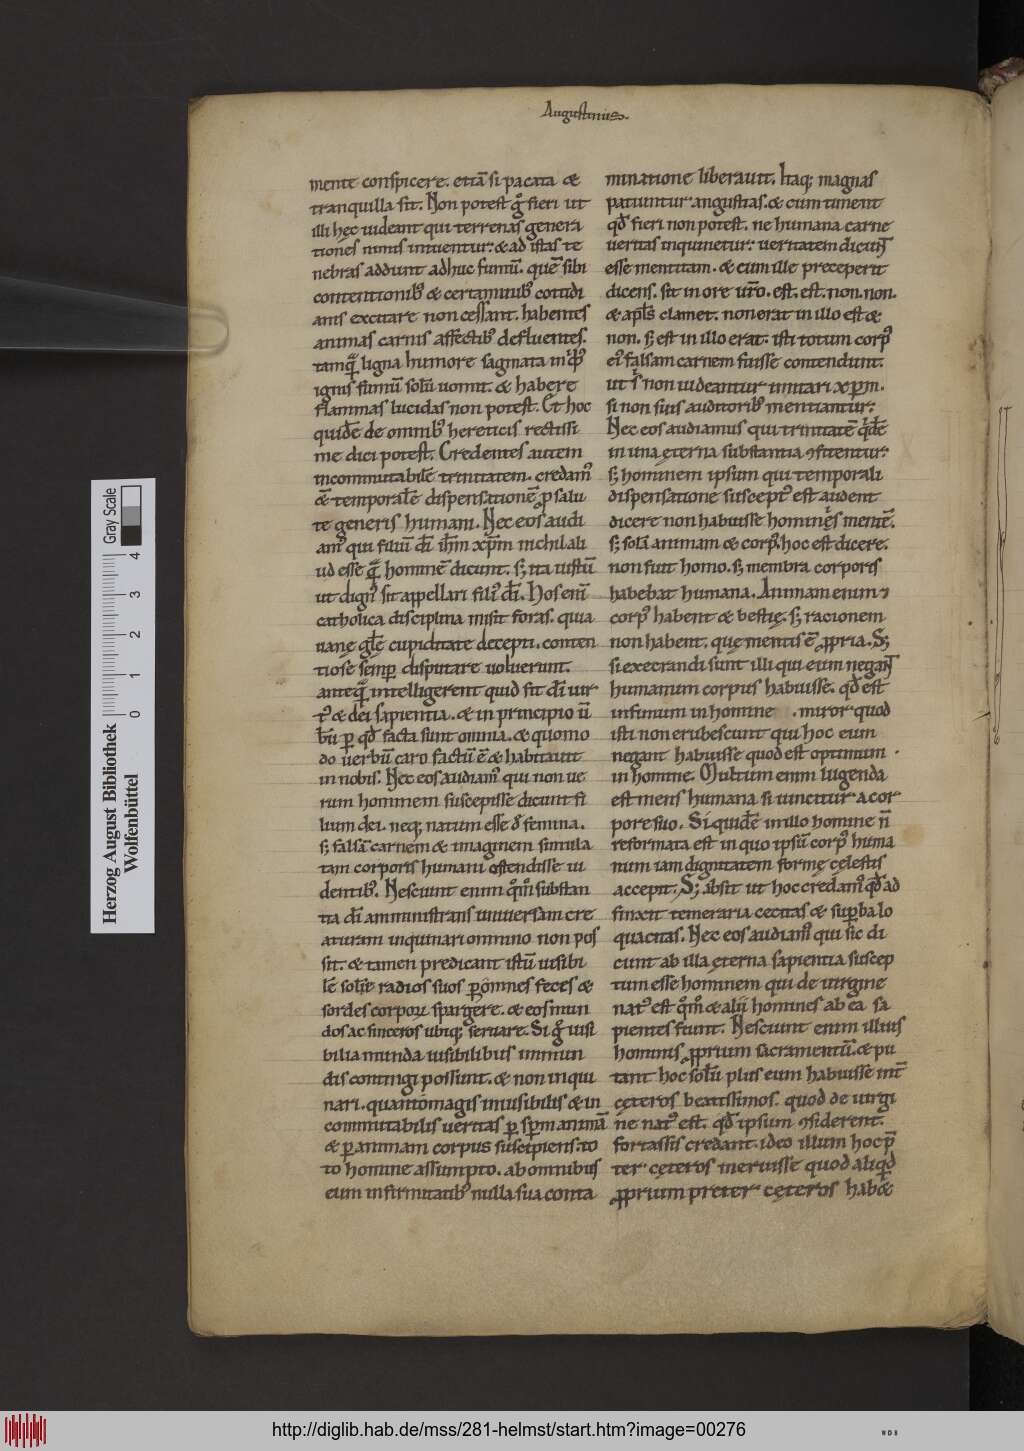 Augustinus.
mente conspicere. etiā si pacata &
tranquilla sit. Non potest gͦ fieri ut
illi hęc uideant qui terrenas genera
tiones nimis intuentur: & ad istas te
nebras addunt adhuc fumū. quē sibi
contentionibꝰ & certaminibꝰ cotidi
anis excitare non cessant. habentes
animas carnis affectibꝰ defluentes.
ligna humore saginata in qͥbꝰ
ignis fumū solū uomit. & habere
flammas lucidas non potest. Et hoc
quidē de omnibꝰ hereticis rectissi
me dici potest. Credentes autem
incommutabilē trinitatem. credamꝰ
& temporalē dispensationē ꝓ salu
te generis humani. Nec eos audi
amꝰ qui filiū dī ihm̄ xp̄m nichil ali
ud esse qᷓ hominē dicunt. s; ita iustū
ut dignꝰ sit appellari filiꝰ dī. Hos enī
catholica disciplina misit foras. quia
uanę gl̄e cupiditate decepti. conten
tiose semꝑ disputare uoluerunt.
anteqᷓ intelligerent quid sit dī uir
tꝰ & dei sapientia. & in principio ū
bū ꝑ qd̄ facta sunt omnia. & quomo
do uerbū caro factū ē & habitauit
in nobis. Nec eos audiamꝰ qui non ue
rum hominem suscepisse dicunt fi
lium dei. neq; natum esse de femina.
s; falsā carnem & imaginem simula
tam corporis humani ostendisse ui
dentibꝰ. Nesciunt enim qͦm̄ substan
tia dī amministrans uniuersam cre
aturam inquinari omnino non pos
sit. & tamen predicant istū uisibi
lē solē radios suos ꝑ omnes feces &
sordes corporū spargere. & eos mun
dos ac sinceros ubiq; seruare. Si gͦ uisi
bilia munda uisibilibus inmun
dis contingi possunt. & non inqui
nari. quanto magis inuisibilis & in
commutabilis ueritas ꝑ spm̄ animā
& ꝑ animam corpus suscipiens. to
to homine assumpto. ab omnibus
eum infirmitatibꝰ nulla sua conta
minatione liberauit. Itaq; magnas
patiuntur angustias. & cum timent
qd̄ fieri non potest. ne humana carne
ueritas inquinetur: ueritatem dicunt
esse mentitam. & cum ille preceperit
dicens. sit in ore ur̄o. est. est. non. non.
& apl̄s clamet. non erat in illo est &
non. s; est in illo erat. isti totum corpꝰ
eiꝰ falsam carnem fuisse contendunt.
ut sͥ non uideantur imitari xp̄m.
si non suis auditoribꝰ mentiantur.
Nec eos audiamus qui trinitatē qͥdē
in una ęterna substantia ꝯfitentur.
s; hominem ipsum qui temporali
dispensatione susceptꝰ est audent
dicere non habuisse hominis mentē.
s; solā animam & corpꝰ. hoc est dicere.
non fuit homo. s; membra corporis
habebat humana. Animam enim ⁊
corpꝰ habent & bestię. s; racionem
non habent. quę mentis ē ꝓpria. S;
si execrandi sunt illi qui eum negant
humanum corpus habuisse. qd̄ est
infimum in homine. miror quod
isti non erubescunt qui hoc eum
negant habuisse quod est optimum
in homine. Multum enim lugenda
est mens humana si uincitur a cor
pore suo. Si quidē in illo homine n̄
reformata est in quo ipsū corpꝰ huma
num iam dignitatem formę cęlestis
accepit. S; absit ut hoc credamꝰ qd̄ ad
finxit temeraria cecitas & suꝑba lo
quacitas. Nec eos audiamꝰ qui sic di
cunt ab illa ęterna sapientia suscep
tum esse hominem qui de uirgine
natꝰ est qͦm̄ & alii homines ab ea sa
pientes fiunt. Nesciunt enim illius
hominis ꝓprium sacramentū. & pu
tant hoc solū plus eum habuisse int̄
cęteros beatissimos. quod de uirgi
ne natꝰ est. qd̄ ipsum ꝯsiderent.
fortassis credant. ideo illum hoc p̄
ter cęteros meruisse quod aliqd̄
ꝓprium preter cęteros hab&
Gray Scale
4
3
2
1
0
Herzog August Bibliothek
Wolfenbüttel
http://diglib.hab.de/mss/281-helmst/start.htm?image=00276